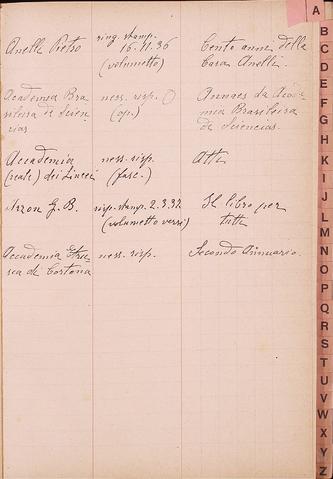 Anelli Pietro ring. stamp. Cento anni della
16.11.36 Casa Anelli.
(volumetto)
Academia Bra- ness. risp. Annaes da Acade-
sileira de Scien- (op.) mia Brasileira
cias de Sciencias.
Accademia ness. risp. Atti
(reale) dei Lincei (fasc.)
Azzon G. B. risp. stamp. 2.3.37. Il libro per
(volumetto versi) tutti
Accademia Etru- ness. risp. Secondo Annuario.
sca di Cortona
A
B
C
D
E
F
G
H
I
J
K
L
M
N
O
P
Q
R
S
T
U
V
W
X
Y
Z